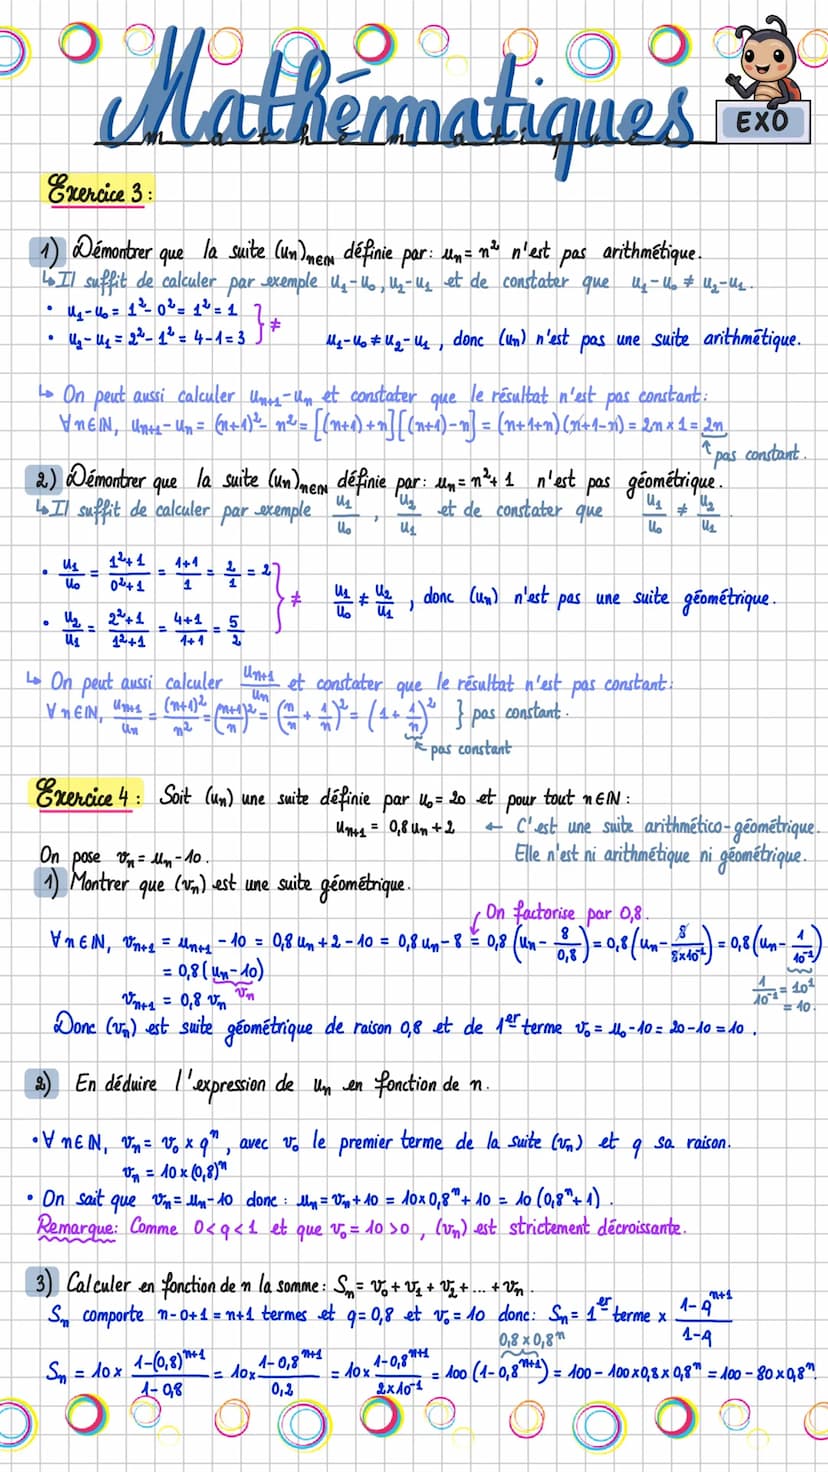 Mathématiques
mathématiques
EXO
Exercice 3 :
1) Démontrer que la suite (un)n∈ℕ définie par : un = n² n'est pas arithmétique.
↳ Il suffit de calculer par exemple u₁-u₀, u₂-u₁ et de constater que u₁-u₀ ≠ u₂-u₁.
• u₁-u₀ = 1²-0² = 1² = 1
• u₂-u₁ = 2²-1² = 4-1 = 3 } ≠ u₁-u₀ ≠ u₂-u₁, donc (un) n'est pas une suite arithmétique.
↳ On peut aussi calculer un+1-un et constater que le résultat n'est pas constant :
∀n∈ℕ, un+1-un = (n+1)²-n² = [(n+1)+n][(n+1)-n] = (n+1+n)(n+1-n) = 2n×1 = 2n
↑ pas constant.
2) Démontrer que la suite (un)n∈ℕ définie par : un = n²+1 n'est pas géométrique.
↳ Il suffit de calculer par exemple u₁/u₀, u₂/u₁ et de constater que u₁/u₀ ≠ u₂/u₁.
• u₁/u₀ = (1²+1)/(0²+1) = (1+1)/1 = 2/1 = 2
• u₂/u₁ = (2²+1)/(1²+1) = (4+1)/(1+1) = 5/2 } ≠ u₁/u₀ ≠ u₂/u₁, donc (un) n'est pas une suite géométrique.
↳ On peut aussi calculer un+1/un et constater que le résultat n'est pas constant :
∀n∈ℕ, un+1/un = (n+1)²/n² = ((n+1)/n)² = (n/n + 1/n)² = (1 + 1/n)² } pas constant.
↖ pas constant
Exercice 4 : Soit (un) une suite définie par u₀ = 20 et pour tout n∈ℕ :
un+1 = 0,8un+2 ← C'est une suite arithmético-géométrique.
Elle n'est ni arithmétique ni géométrique.
On pose vn = un-10.
1) Montrer que (vn) est une suite géométrique.
On factorise par 0,8.
∀n∈ℕ, vn+1 = un+1 - 10 = 0,8un+2-10 = 0,8un-8 = 0,8(un - 8/0,8) = 0,8(un - 8/(8×10⁻¹)) = 0,8(un - 1/10⁻¹)
= 0,8(un-10)
vn
1/10⁻¹ = 10¹
= 10.
vn+1 = 0,8 vn
Donc (vn) est suite géométrique de raison 0,8 et de 1er terme v₀ = u₀-10 = 20-10 = 10.
2) En déduire l'expression de un en fonction de n.
• ∀n∈ℕ, vn = v₀ × qⁿ, avec v₀ le premier terme de la suite (vn) et q sa raison.
vn = 10×(0,8)ⁿ
• On sait que vn = un-10 donc : un = vn+10 = 10×0,8ⁿ+10 = 10(0,8ⁿ+1).
Remarque : Comme 0<q<1 et que v₀ = 10 >0, (vn) est strictement décroissante.
3) Calculer en fonction de n la somme : Sn = v₀ + v₁ + v₂ + ... + vn.
Sn comporte n-0+1 = n+1 termes et q = 0,8 et v₀ = 10 donc : Sn = 1er terme × (1-qⁿ⁺¹)/(1-q)
0,8×0,8ⁿ
Sn = 10 × (1-(0,8)ⁿ⁺¹)/(1-0,8) = 10× (1-0,8ⁿ⁺¹)/0,2 = 10× (1-0,8ⁿ⁺¹)/(2×10⁻¹) = 100 (1-0,8ⁿ⁺¹) = 100-100×0,8×0,8ⁿ = 100-80×0,8ⁿ.